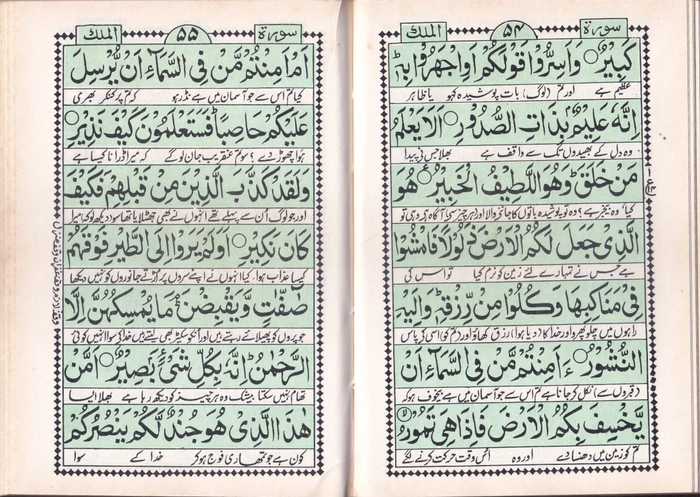 سورة ۵۴ الملك
كَبِيْرٌ ۝ وَاَسِرُّوْا قَوْلَكُمْ اَوِاجْهَرُوْا بِهٖ ؕ
عظیم ہے اور تم (لوگ) بات پوشیدہ کہو یا ظاہر
اِنَّهٗ عَلِيْمٌۢ بِذَاتِ الصُّدُوْرِ ۝ اَلَا يَعْلَمُ
وہ دل کے بھیدوں تک سے واقف ہے بھلا جس نے پیدا
مَنْ خَلَقَ ؕ وَهُوَ اللَّطِيْفُ الْخَبِيْرُ ۝ هُوَ
کیا وہ بیخبر ہے؟ وہ تو پوشیدہ باتوں کا جاننے والا اور ہر چیز سے آگاہ ہے وہی تو
الَّذِيْ جَعَلَ لَكُمُ الْاَرْضَ ذَلُوْلًا فَامْشُوْا
ہے جس نے تمہارے لئے زمین کو نرم کیا تو اس کی
فِيْ مَنَاكِبِهَا وَكُلُوْا مِنْ رِّزْقِهٖ ؕ وَاِلَيْهِ
راہوں میں چلو پھرو اور خدا کا (دیا ہوا) رزق کھاؤ اور تم کو اسی کے پاس
النُّشُوْرُ ۝ ءَاَمِنْتُمْ مَّنْ فِي السَّمَآءِ اَنْ
(قبروں سے) نکل کر جانا ہے کیا تم اس سے جو آسمان میں ہے بیخوف ہو کہ
يَّخْسِفَ بِكُمُ الْاَرْضَ فَاِذَا هِيَ تَمُوْرُ ۝ۙ
تم کو زمین میں دھنسا دے اور وہ اس وقت حرکت کرنے لگے
سورة ۵۵ الملك
اَمْ اَمِنْتُمْ مَّنْ فِي السَّمَآءِ اَنْ يُّرْسِلَ
کیا تم اس سے جو آسمان میں ہے نڈر ہو کہ تم پر کنکر بھری
عَلَيْكُمْ حَاصِبًا ؕ فَسَتَعْلَمُوْنَ كَيْفَ نَذِيْرِ ۝
ہوا چھوڑ دے؟ سو تم عنقریب جان لو گے کہ میرا ڈرانا کیسا ہے
وَلَقَدْ كَذَّبَ الَّذِيْنَ مِنْ قَبْلِهِمْ فَكَيْفَ
اور جو لوگ ان سے پہلے تھے انہوں نے بھی جھٹلایا تھا سو دیکھ لو کہ میرا
كَانَ نَكِيْرِ ۝ اَوَلَمْ يَرَوْا اِلَى الطَّيْرِ فَوْقَهُمْ
کیسا عذاب ہوا کیا انہوں نے اپنے سروں پر اڑتے جانوروں کو نہیں دیکھا
صٰٓفّٰتٍ وَّيَقْبِضْنَ ؕ مَا يُمْسِكُهُنَّ اِلَّا
جو پروں کو پھیلائے رہتے ہیں اور انکو سکیڑ بھی لیتے ہیں خدا کے سوا انہیں کوئی
الرَّحْمٰنُ ؕ اِنَّهٗ بِكُلِّ شَيْءٍۢ بَصِيْرٌ ۝ اَمَّنْ
تھام نہیں سکتا بیشک وہ ہر چیز کو دیکھ رہا ہے بھلا ایسا
هٰذَا الَّذِيْ هُوَ جُنْدٌ لَّكُمْ يَنْصُرُكُمْ
کون ہے جو تمہاری فوج ہو کر خدا کے سوا